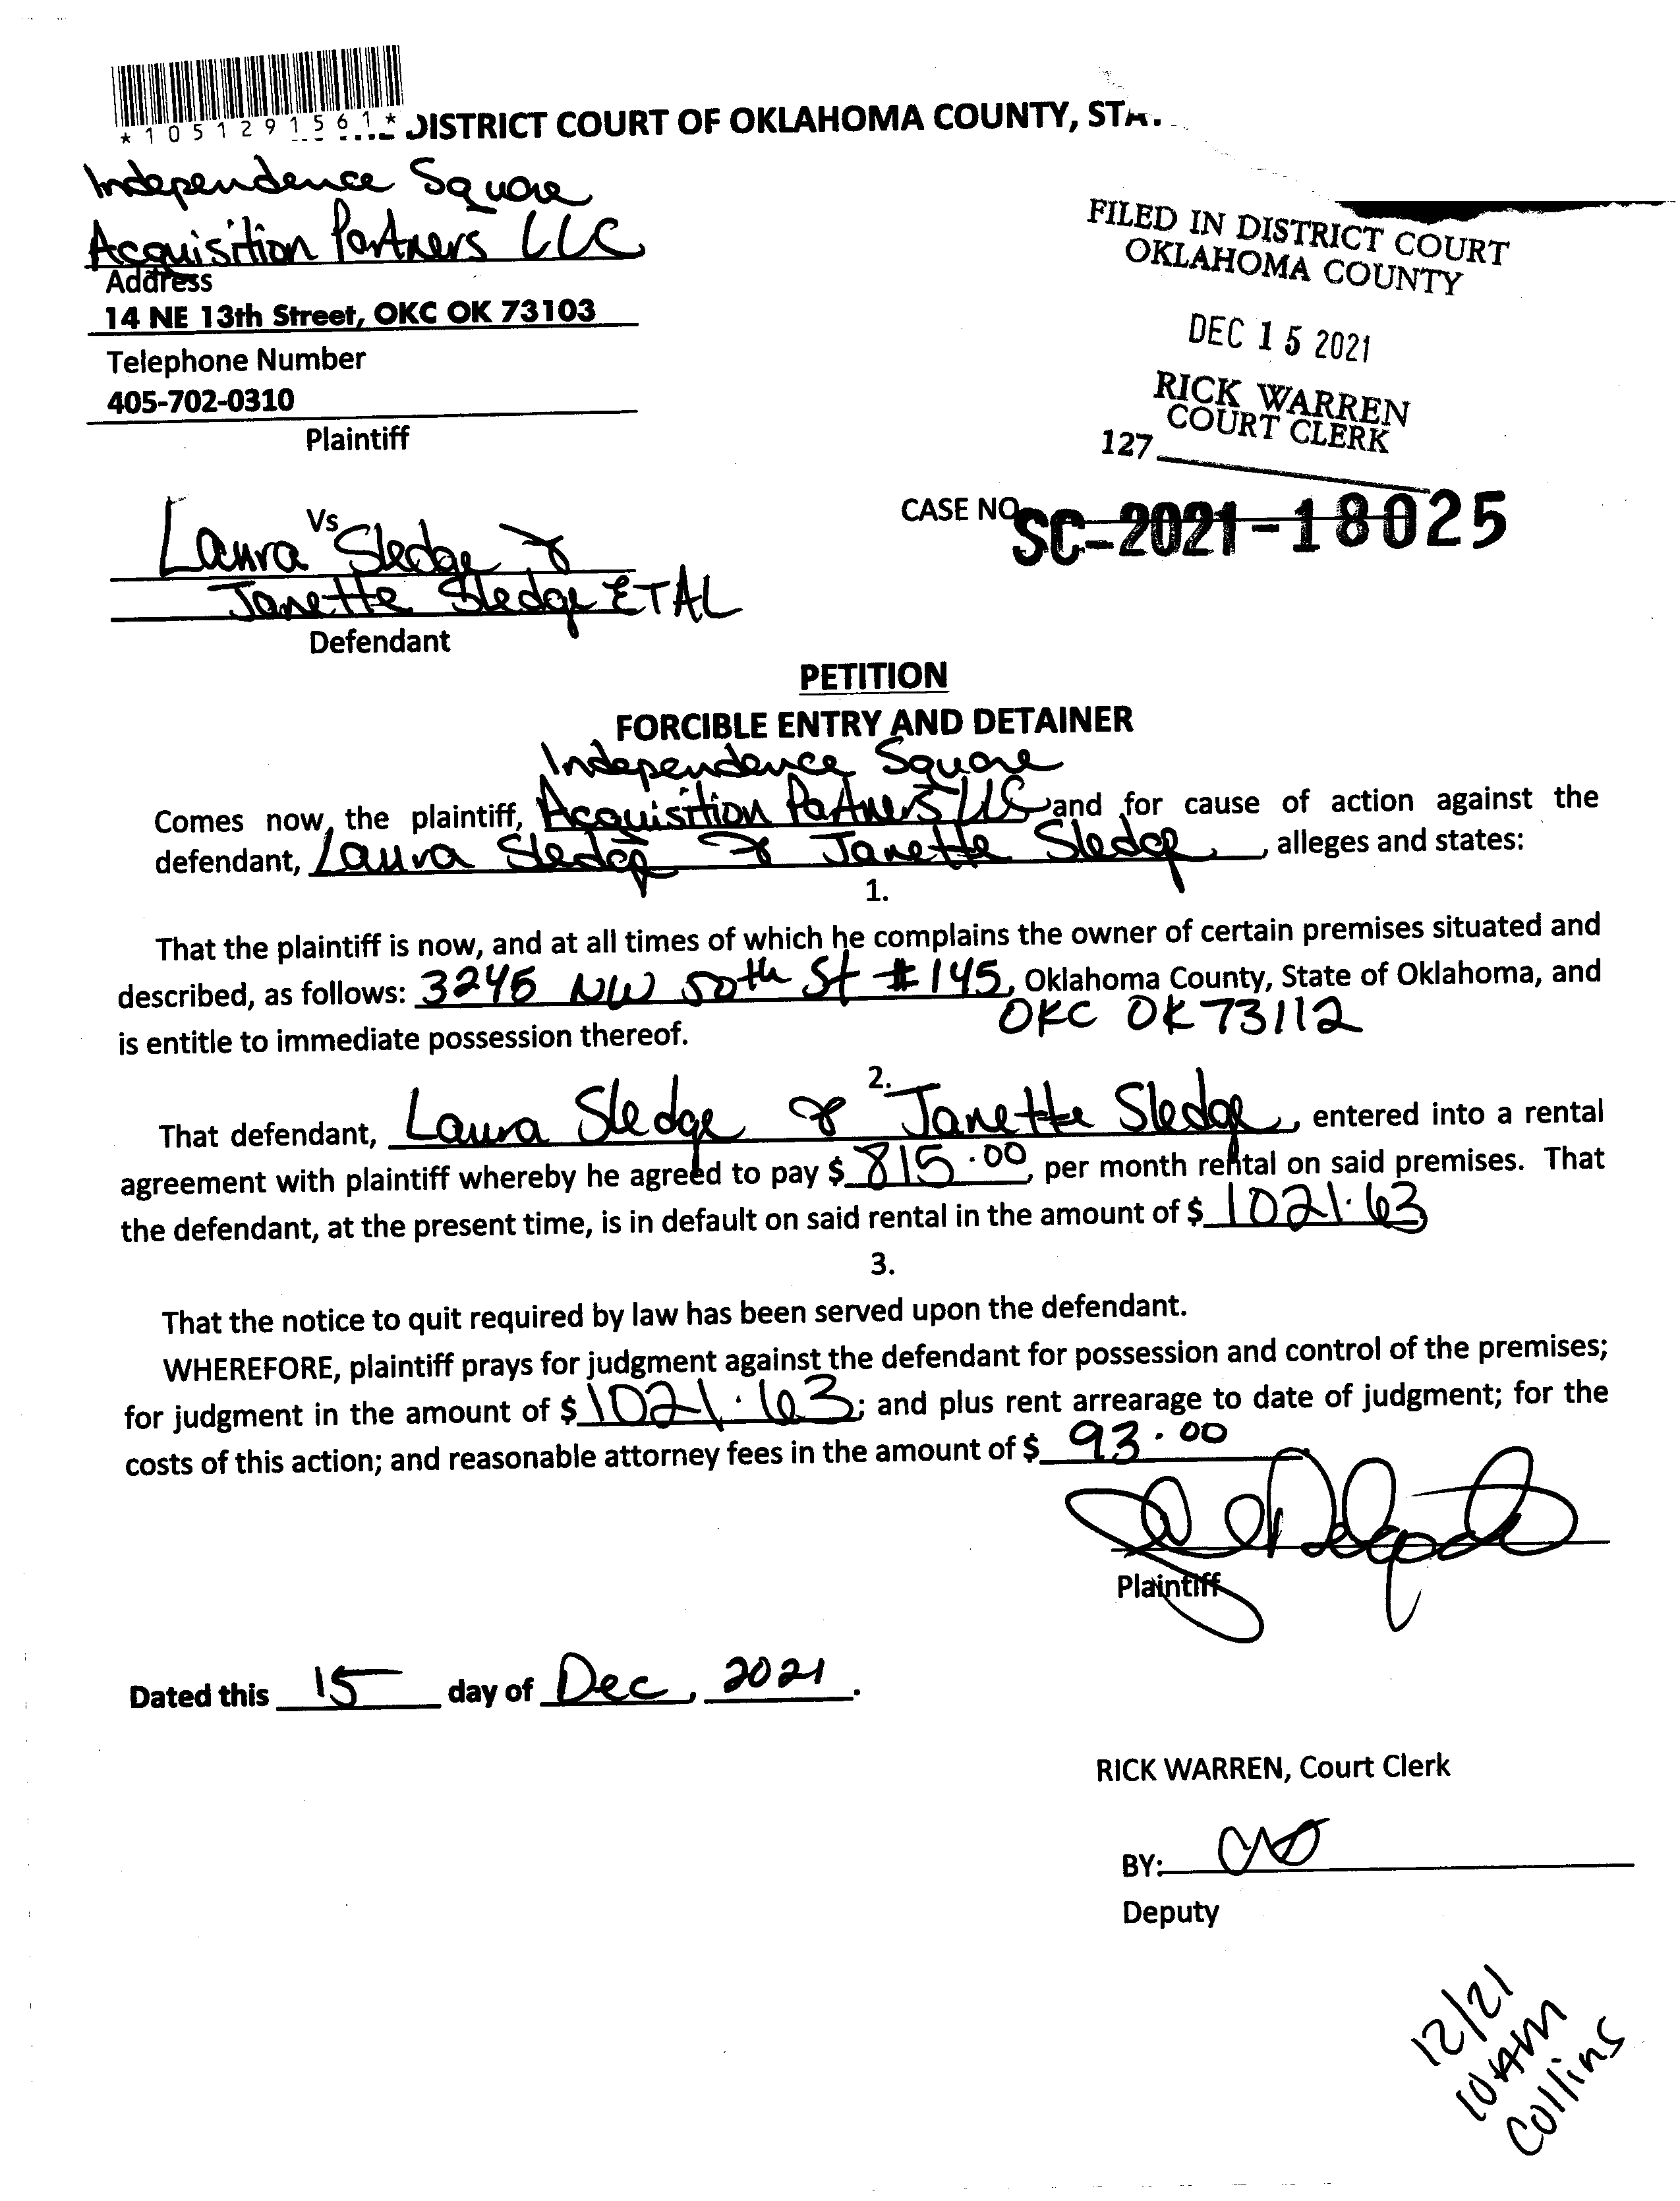 *1051291561*
DISTRICT COURT OF OKLAHOMA COUNTY,
Independence Square
Acquisition Partners LLC
Address
14 NE 13th Street, OKC OK 73103
Telephone Number
405-702-0310
Plaintiff
FILED IN DISTRICT COURT
OKLAHOMA COUNTY
DEC 15 2021
RICK WARREN
COURT CLERK
127
Vs
Laura Sledge &
Janette Sledge ETAL
Defendant
CASE NO. SC-2021-18025
PETITION
FORCIBLE ENTRY AND DETAINER
Independence Square
Comes now, the plaintiff, Acquisition Partners LLC and for cause of action against the
defendant, Laura Sledge & Janette Sledge, alleges and states:
1.
That the plaintiff is now, and at all times of which he complains the owner of certain premises situated and
described, as follows: 3245 NW 50th St #145, Oklahoma County, State of Oklahoma, and
OKC OK 73112
is entitle to immediate possession thereof.
2.
That defendant, Laura Sledge & Janette Sledge, entered into a rental
agreement with plaintiff whereby he agreed to pay $ 815.00, per month rental on said premises. That
the defendant, at the present time, is in default on said rental in the amount of $ 1021.63
3.
That the notice to quit required by law has been served upon the defendant.
WHEREFORE, plaintiff prays for judgment against the defendant for possession and control of the premises;
for judgment in the amount of $ 1021.63; and plus rent arrearage to date of judgment; for the
costs of this action; and reasonable attorney fees in the amount of $ 93.00
Plaintiff
Dated this 15 day of Dec, 2021.
RICK WARREN, Court Clerk
BY:
Deputy
12/21
10AM
Collins